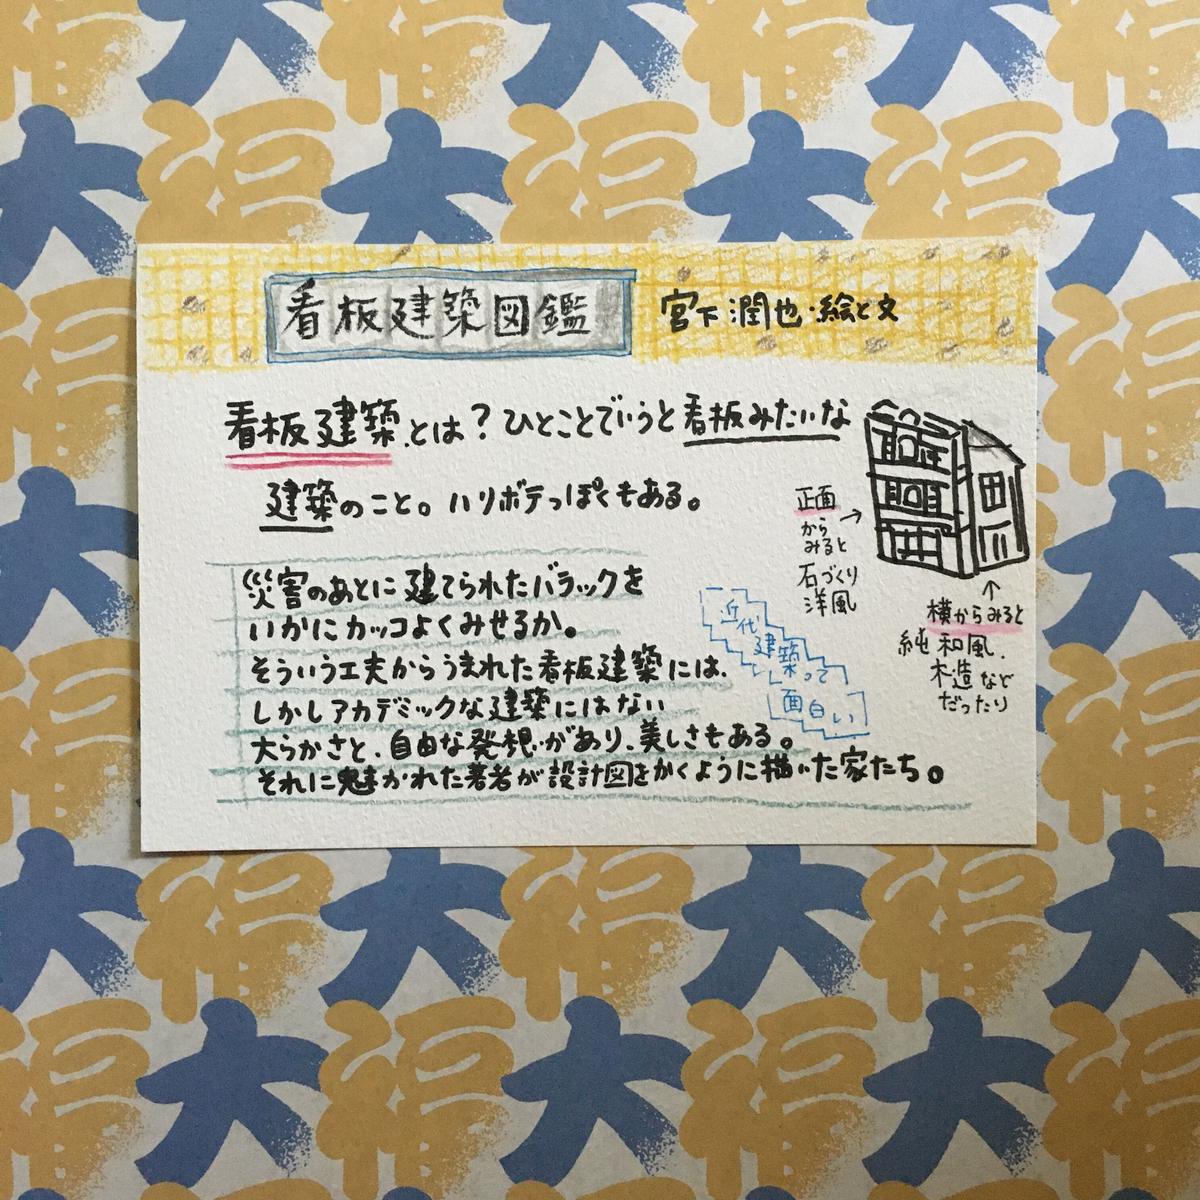 看板建築図鑑
宮下潤也・絵と文
看板建築とは？ひとことでいうと看板みたいな
建築のこと。ハリボテっぽくもある。
正面
から
みると
石づくり
洋風
横からみると
純和風、
木造など
だったり
災害のあとに建てられたバラックを
いかにカッコよくみせるか。
そういう工夫からうまれた看板建築には、
しかしアカデミックな建築にはない
大らかさと、自由な発想があり、美しさもある。
それに魅かれた著者が設計図をかくように描いた家たち。
近代
建築って
面白い
大福